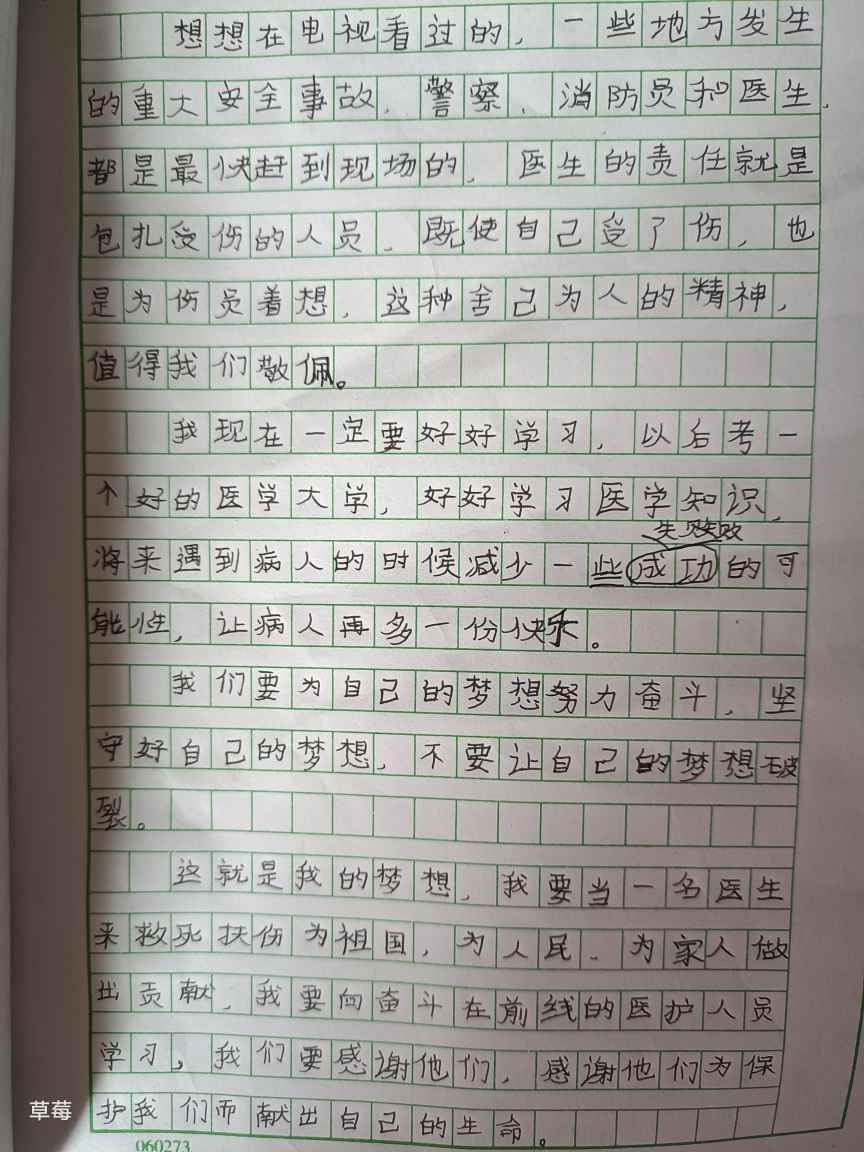 想想在电视看过的，一些地方发生
的重大安全事故，警察、消防员和医生，
都是最快赶到现场的，医生的责任就是
包扎受伤的人员，既使自己受了伤，也
是为伤员着想，这种舍己为人的精神，
值得我们敬佩。
我现在一定要好好学习，以后考一
个好的医学大学，好好学习医学知识，
失败
将来遇到病人的时候减少一些成功的可
能性，让病人再多一份快乐。
我们要为自己的梦想努力奋斗，坚
守好自己的梦想，不要让自己的梦想破
裂。
这就是我的梦想，我要当一名医生
来救死扶伤为祖国，为人民、为家人做
出贡献，我要向奋斗在前线的医护人员
学习，我们要感谢他们，感谢他们为保
护我们而献出自己的生命。
草莓
060273